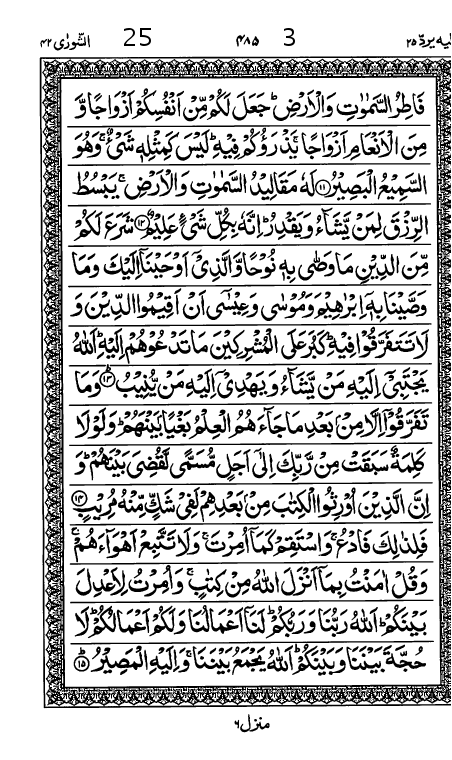 الشورٰى ۴۲ 25 ۴۸۵ 3 اليه يردّ ۲۵
فَاطِرُ السَّمٰوٰتِ وَالْاَرْضِ ؕ جَعَلَ لَكُمْ مِّنْ اَنْفُسِكُمْ اَزْوَاجًا وَّ
مِنَ الْاَنْعَامِ اَزْوَاجًا ۚ يَذْرَؤُكُمْ فِيْهِ ؕ لَيْسَ كَمِثْلِهٖ شَيْءٌ ۚ وَهُوَ
السَّمِيْعُ الْبَصِيْرُ ﴿۱۱﴾ لَهٗ مَقَالِيْدُ السَّمٰوٰتِ وَالْاَرْضِ ۚ يَبْسُطُ
الرِّزْقَ لِمَنْ يَّشَآءُ وَيَقْدِرُ ؕ اِنَّهٗ بِكُلِّ شَيْءٍ عَلِيْمٌ ﴿۱۲﴾ شَرَعَ لَكُمْ
مِّنَ الدِّيْنِ مَا وَصّٰى بِهٖ نُوْحًا وَّالَّذِيْۤ اَوْحَيْنَاۤ اِلَيْكَ وَمَا
وَصَّيْنَا بِهٖۤ اِبْرٰهِيْمَ وَمُوْسٰى وَعِيْسٰۤى اَنْ اَقِيْمُوا الدِّيْنَ وَ
لَا تَتَفَرَّقُوْا فِيْهِ ؕ كَبُرَ عَلَى الْمُشْرِكِيْنَ مَا تَدْعُوْهُمْ اِلَيْهِ ؕ اَللّٰهُ
يَجْتَبِيْۤ اِلَيْهِ مَنْ يَّشَآءُ وَيَهْدِيْۤ اِلَيْهِ مَنْ يُّنِيْبُ ﴿۱۳﴾ وَمَا
تَفَرَّقُوْۤا اِلَّا مِنْۢ بَعْدِ مَا جَآءَهُمُ الْعِلْمُ بَغْيًۢا بَيْنَهُمْ ؕ وَلَوْلَا
كَلِمَةٌ سَبَقَتْ مِنْ رَّبِّكَ اِلٰۤى اَجَلٍ مُّسَمًّى لَّقُضِيَ بَيْنَهُمْ ؕ وَ
اِنَّ الَّذِيْنَ اُوْرِثُوا الْكِتٰبَ مِنْۢ بَعْدِهِمْ لَفِيْ شَكٍّ مِّنْهُ مُرِيْبٍ ﴿۱۴﴾
فَلِذٰلِكَ فَادْعُ ۚ وَاسْتَقِمْ كَمَاۤ اُمِرْتَ ۚ وَلَا تَتَّبِعْ اَهْوَآءَهُمْ ۚ
وَقُلْ اٰمَنْتُ بِمَاۤ اَنْزَلَ اللّٰهُ مِنْ كِتٰبٍ ۚ وَاُمِرْتُ لِاَعْدِلَ
بَيْنَكُمْ ؕ اَللّٰهُ رَبُّنَا وَرَبُّكُمْ ؕ لَنَاۤ اَعْمَالُنَا وَلَكُمْ اَعْمَالُكُمْ ؕ لَا
حُجَّةَ بَيْنَنَا وَبَيْنَكُمْ ؕ اَللّٰهُ يَجْمَعُ بَيْنَنَا ۚ وَاِلَيْهِ الْمَصِيْرُ ﴿۱۵﴾
منزل ۶